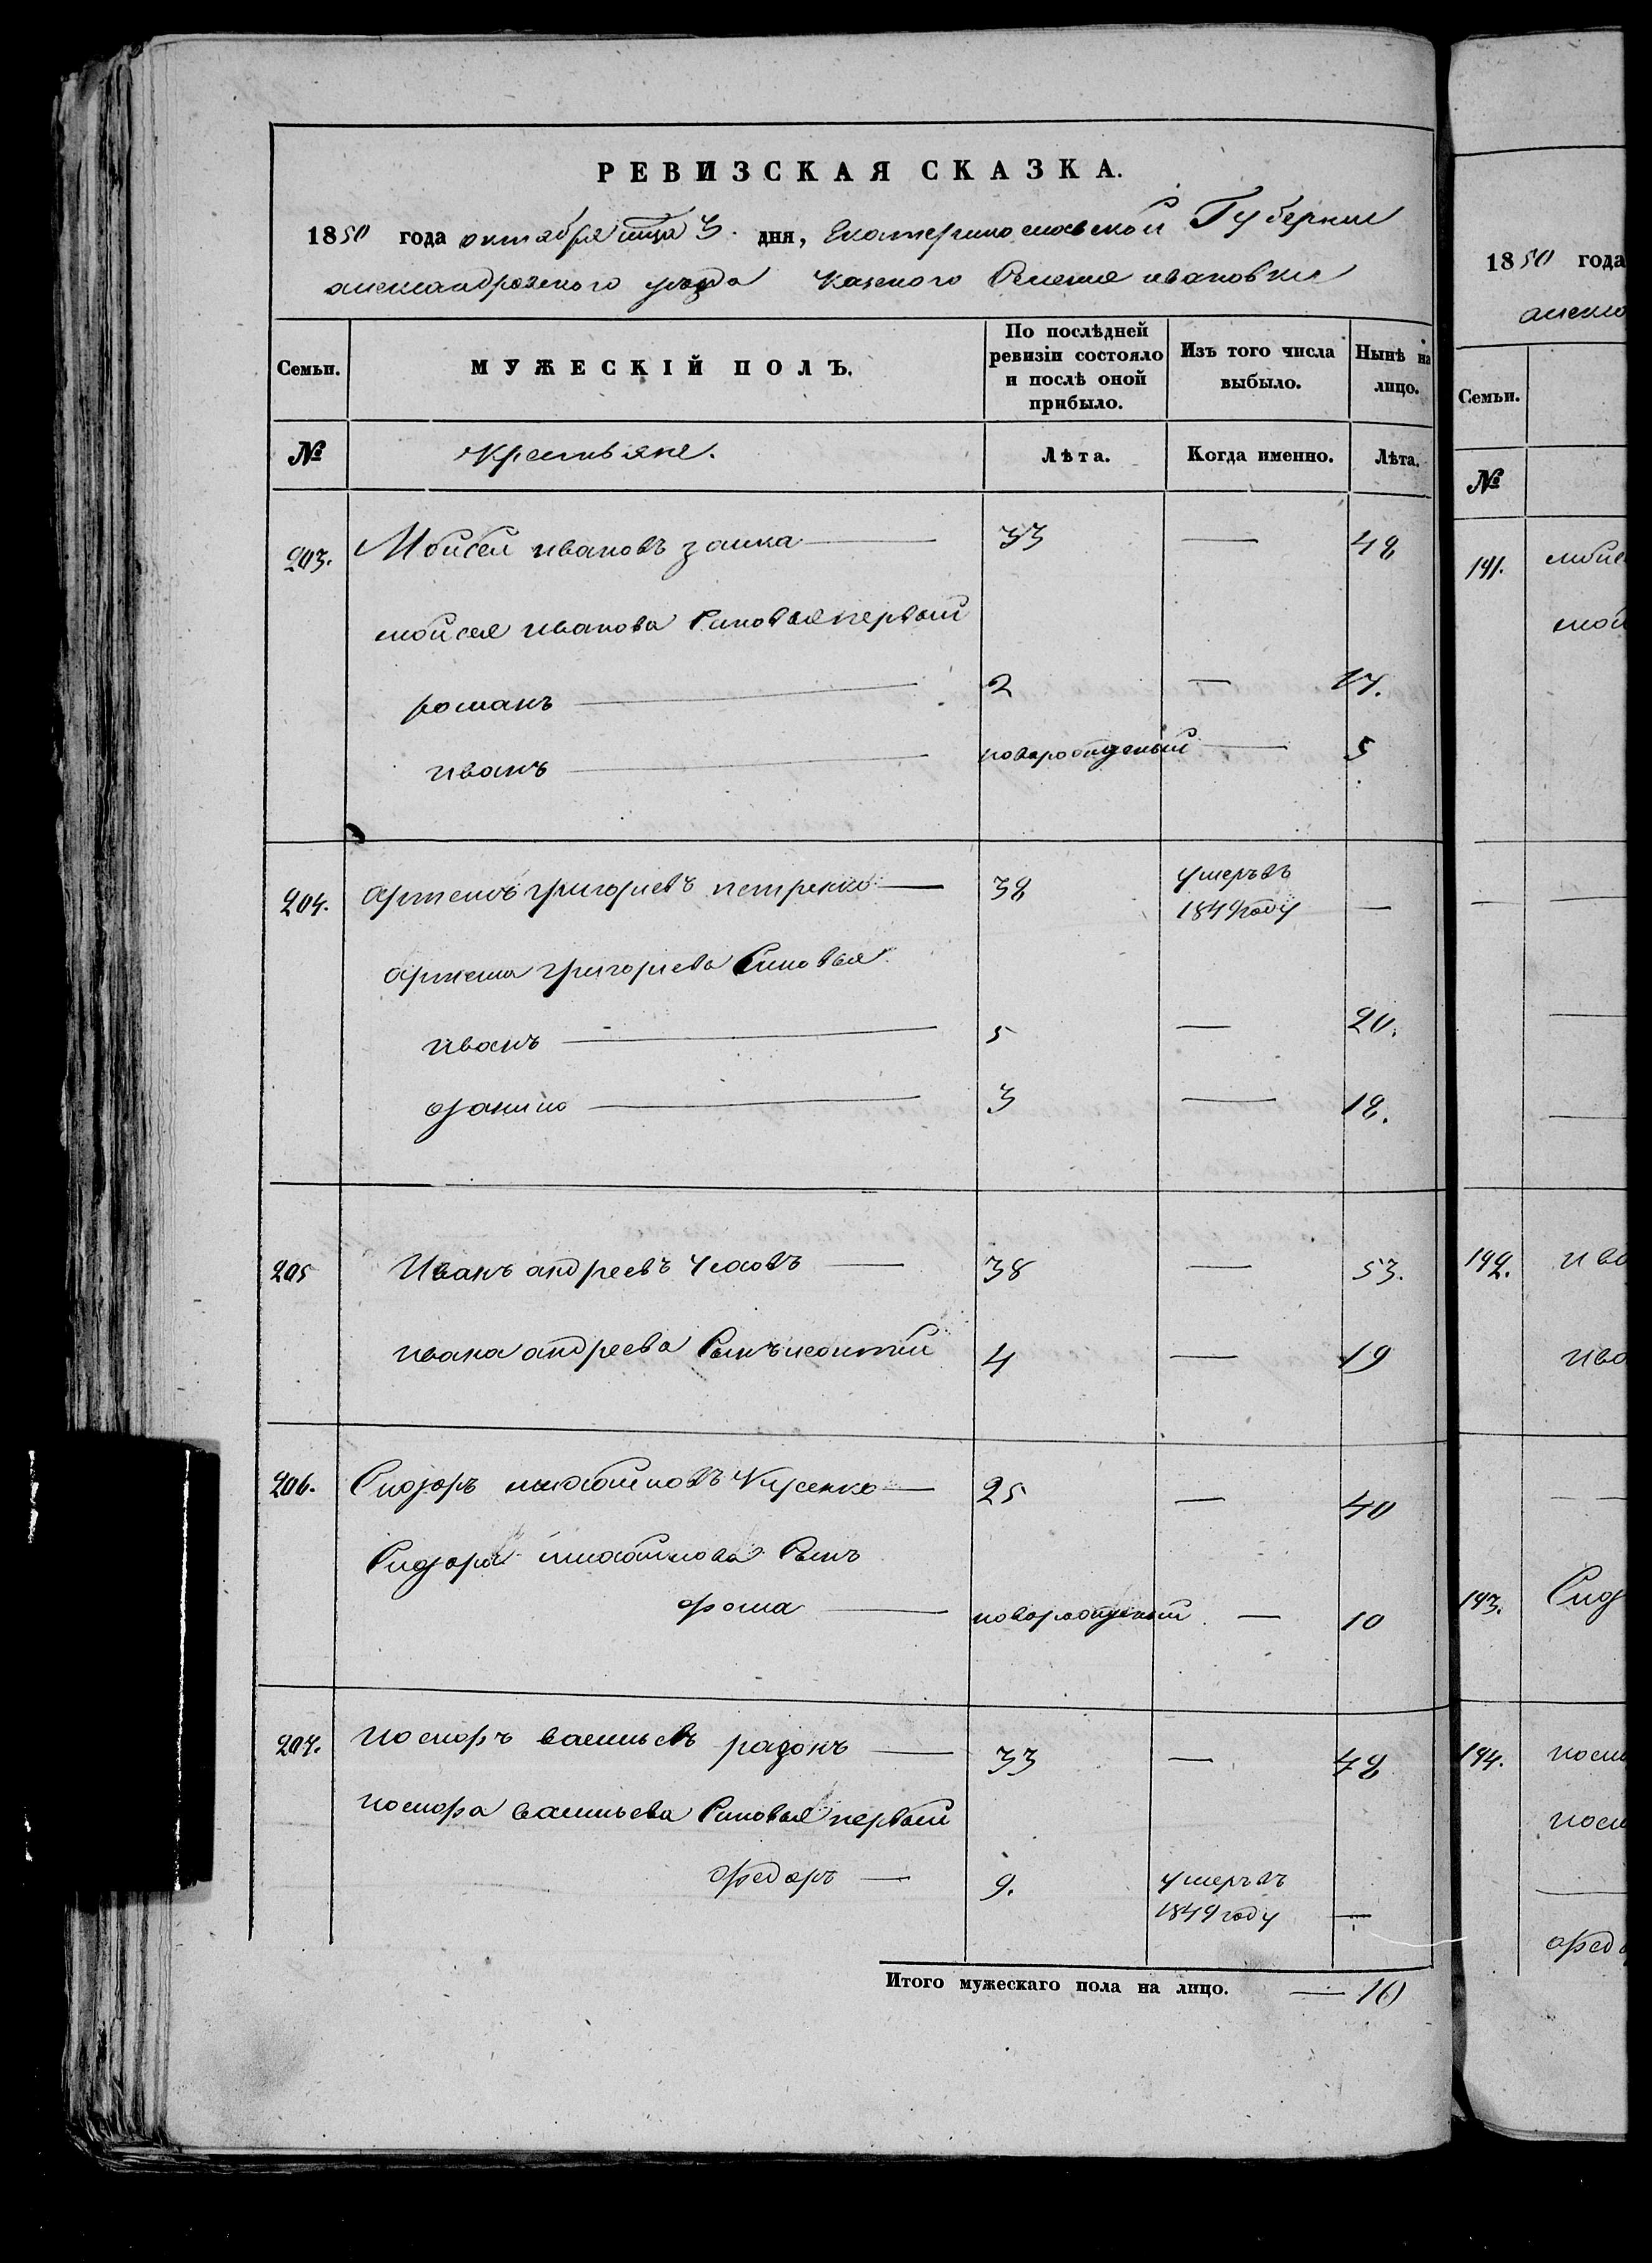 РЕВИЗСКАЯ СКАЗКА.
1850 года октября мца 3. дня, Екатеринославской Губернии
александровского уезда Казеного Селения ивановки
Семьи.
МУЖЕСКІЙ ПОЛЪ.
По послѣдней
ревизіи состояло
и послѣ оной
прибыло.
Изъ того числа
выбыло.
Нынѣ на
лицо.
№
крестьяне.
Лѣта.
Когда именно.
Лѣта.
203. Мойсей ивановъ заика — 33 — 48
мойсея иванова Синовья первый
романъ — 2 — 17.
иванъ — новорожденый — 5
204. артемъ григориевъ петренко — 38 умеръ въ
1849 году —
артема григориева Синовья
иванъ — 5 — 20.
данило — 3 — 18.
205 Иванъ андреевъ — 38 — 53.
ивана андреева Сынъ леонтий 4 — 19
206. Сидоръ — 25 — 40
Сидора Сынъ
фома — новорожденый — 10
207. никифоръ васильевъ — 33 — 48
никифора васильева Синовья первый
федоръ — 9. умеръ въ
1849 году —
Итого мужескаго пола на лицо. — 10
1850 года
Семьи.
№
191.
192.
193. Сид
194.